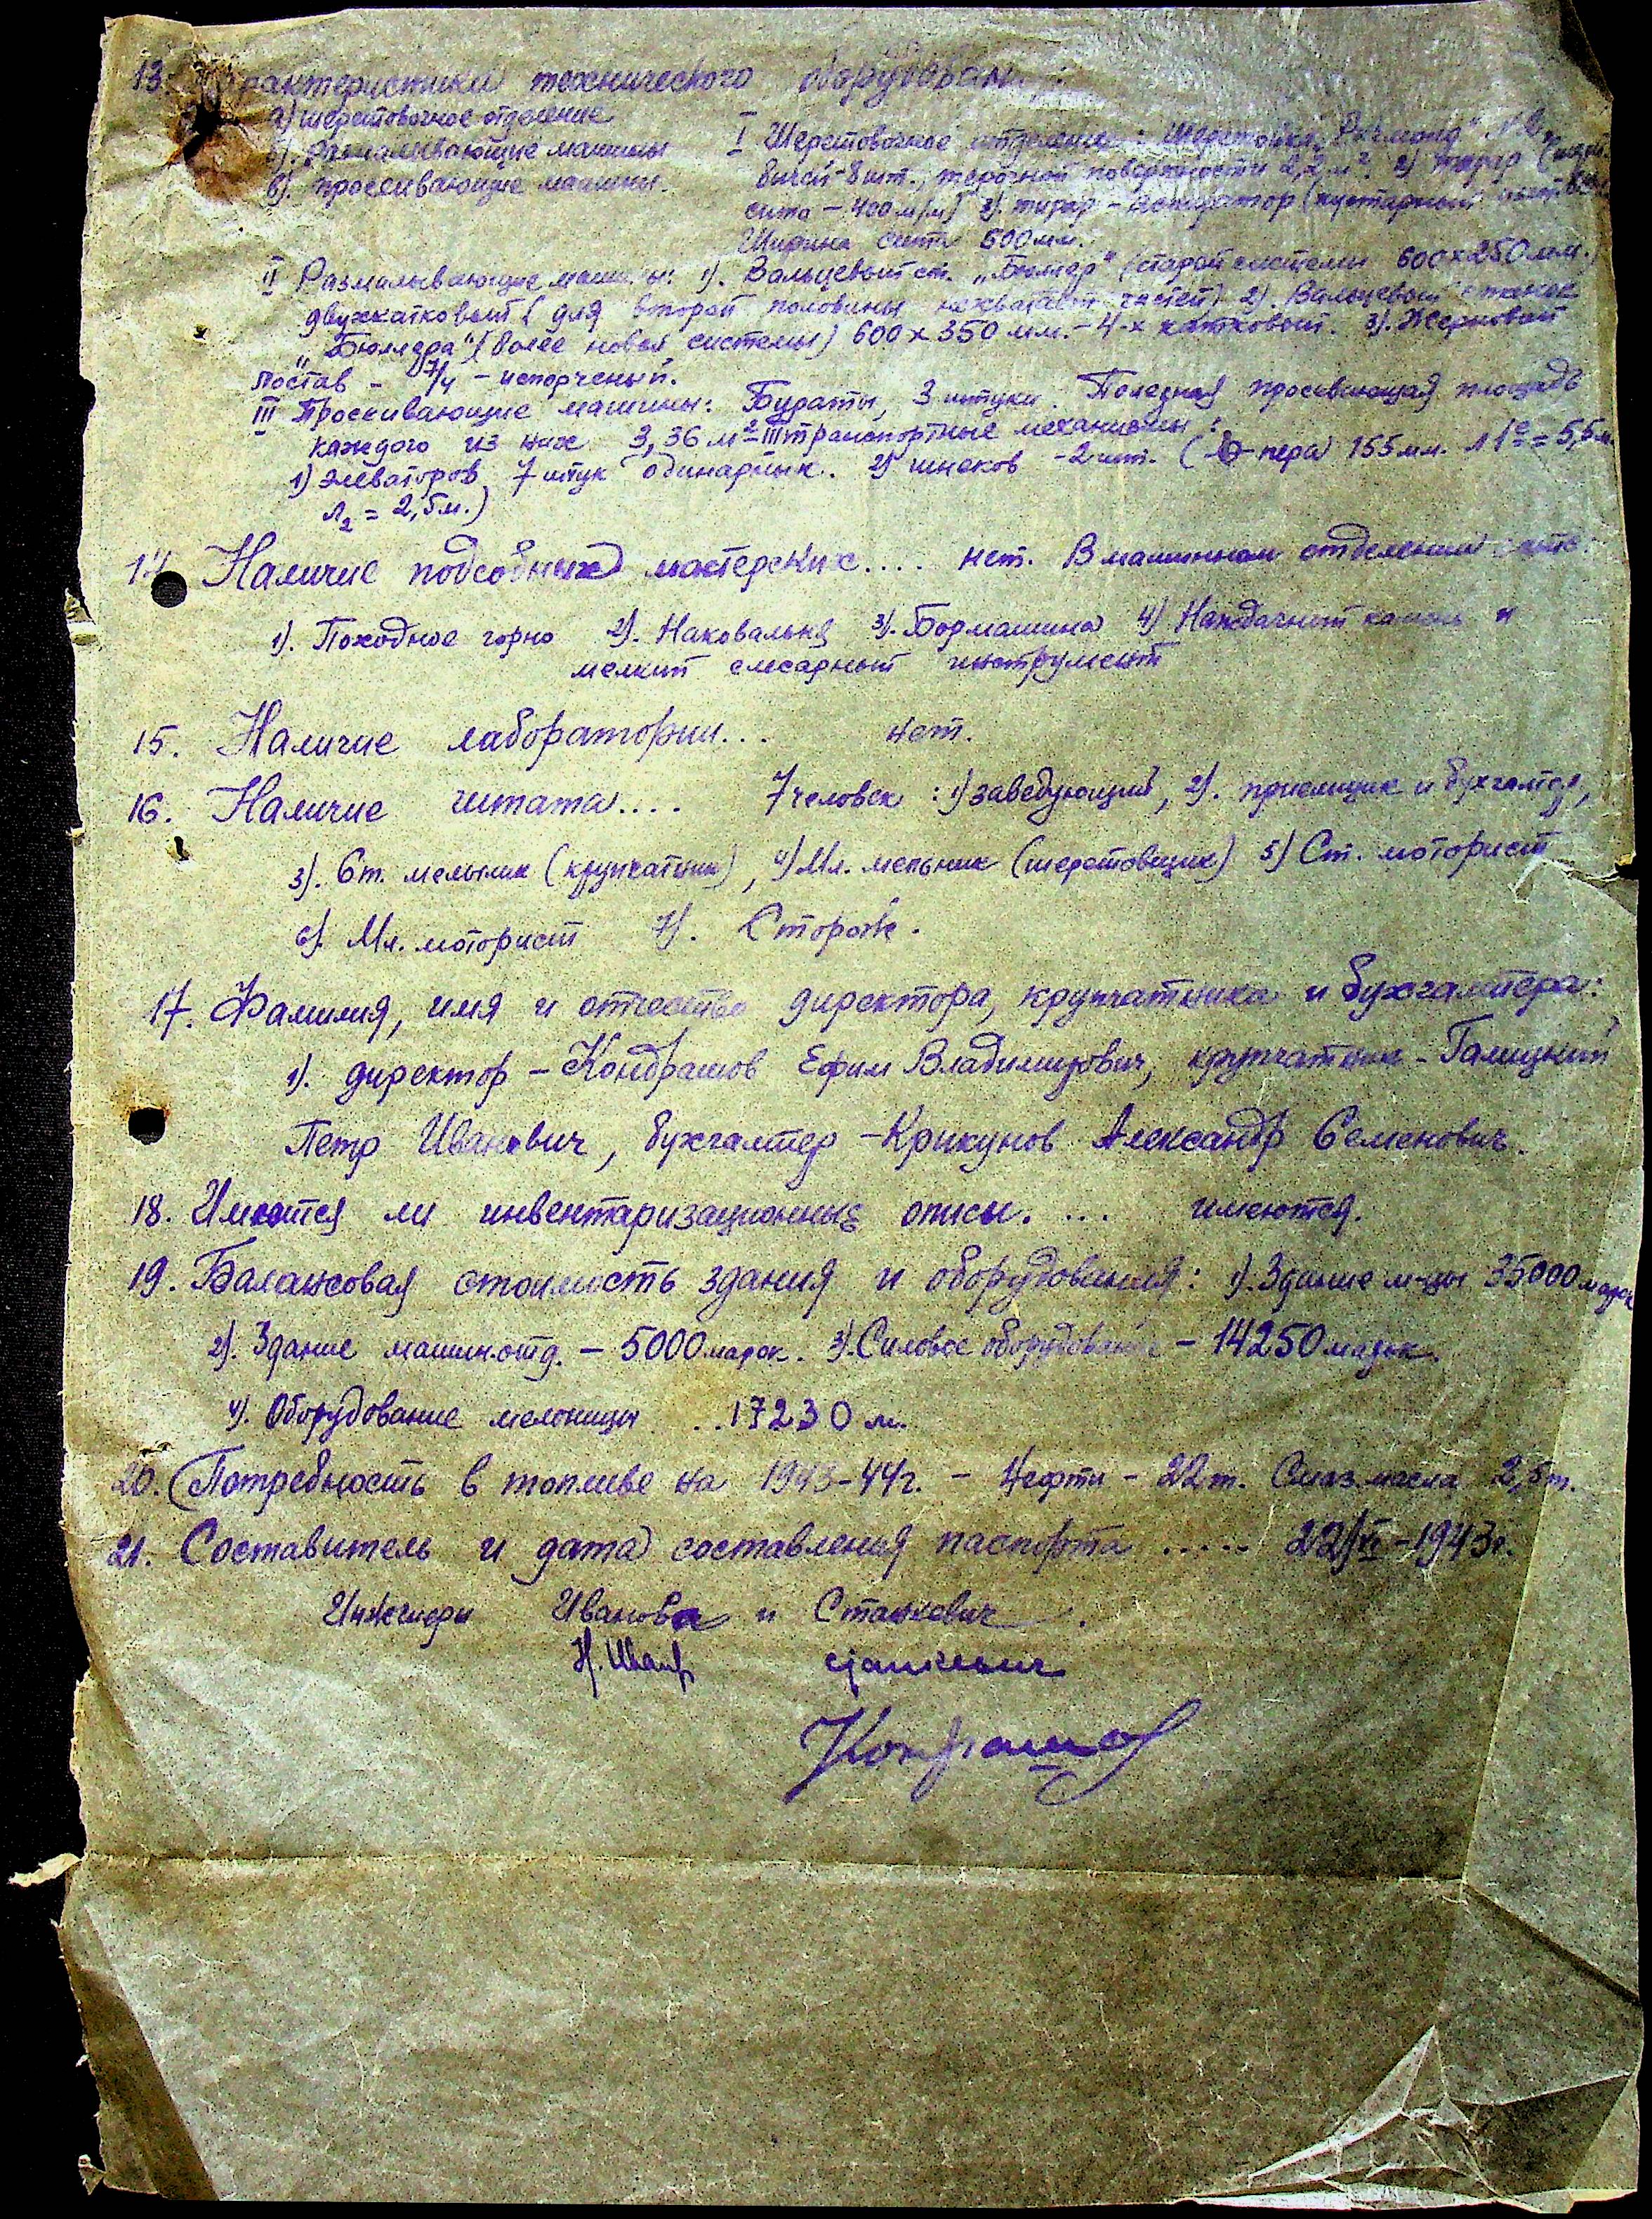 13. Характеристики технического оборудован :
а) шеретовочное отделение
б). размалывающие машины
в). просеивающие машины.
I Шеретовочное отделение: Шеретойка „Ричмонд" №2,
бичей-8 шт., терочной поверхности 2,2 м². 2) тарар
сито – 400 м/м) 3). тарар – аспиратор (кустарный
Ширина сита 500 мм.
II Размалывающие машины: 1). Вальцевый ст. „Бюлер" (старой системы 600х250 мм.)
двухкатковый (для второй половины нехватает частей) 2). Вальцевый станок
„Бюллера" (более новой системы) 600 х 350 мм. – 4-х катковый. 3). Жерновой
постав – 7/4 – испорченый.
III Просеивающие машины: Бураты, 3 штуки. Полезная просеивающая площадь
каждого из них 3,36 м² III транспортные механизмы:
1) Элеваторов 7 штук одинарных. 2) шнеков – 2 шт. ( пера 155 мм. = 5,5 м.
л₂ = 2,5 м.)
14 Наличие подсобных мастерских.... нет. В машинном отделении
1). Походное горно 2). Наковальня 3). Бормашина 4) Наждачный камень и
мелкий слесарный инструмент
15. Наличие лаборатории... нет.
16. Наличие штата.... 7 человек : 1) заведующий, 2). приемщик и бухгалтер,
3). Ст. мельник (крупчатник), 4) Мл. мельник (шеретовщик) 5) Ст. моторист
6). Мл. моторист 7). Сторож.
17. Фамилия, имя и отчество директора, крупчатника и бухгалтера:
1). директор – Кондрашов Ефим Владимирович, крупчатник – Галицкий
Петр Иванович, бухгалтер – Крикунов Александр Семенович.
18. Имеются ли инвентаризационные описи. ... имеются.
19. Балансовая стоимость здания и оборудования: 1). Здание м-цы 35000 марок
2). Здание машин.отд. – 5000 марок. 3). Силовое оборудование – 14250 марок.
4). Оборудование мельницы ..17230 м.
20. Потребность в топливе на 1943-44 г. – Нефти – 22 т. Смаз.масла 2,5 т.
21. Составитель и дата составления паспорта ..... 22/VI – 1943 г.
Инженеры Иванова и Станкевич.
Н. Иван
Станкевич
Кондрашов